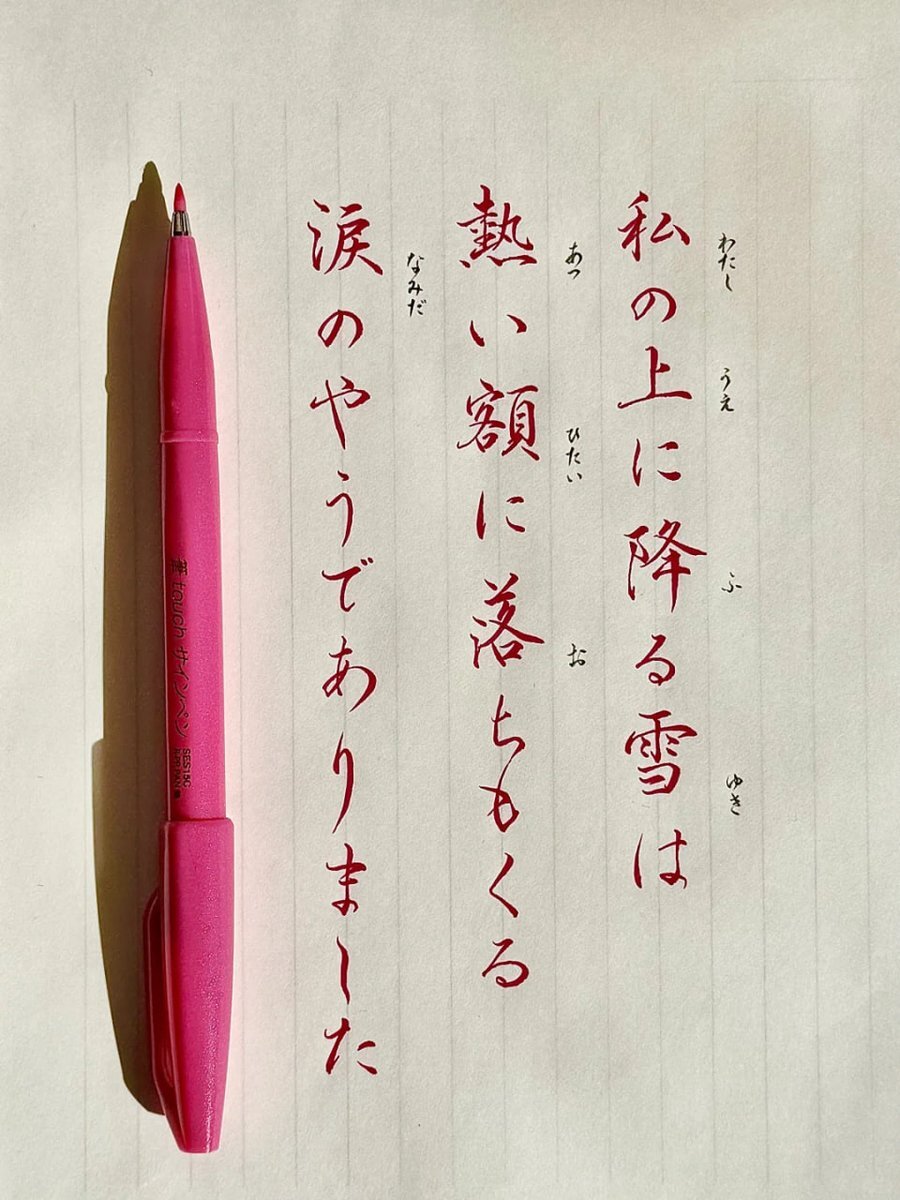 私の上に降る雪は
わたし うえ ふ ゆき
熱い額に落ちもくる
あつ ひたい お
涙のやうでありました
なみだ
筆touchサインペン
SES15C